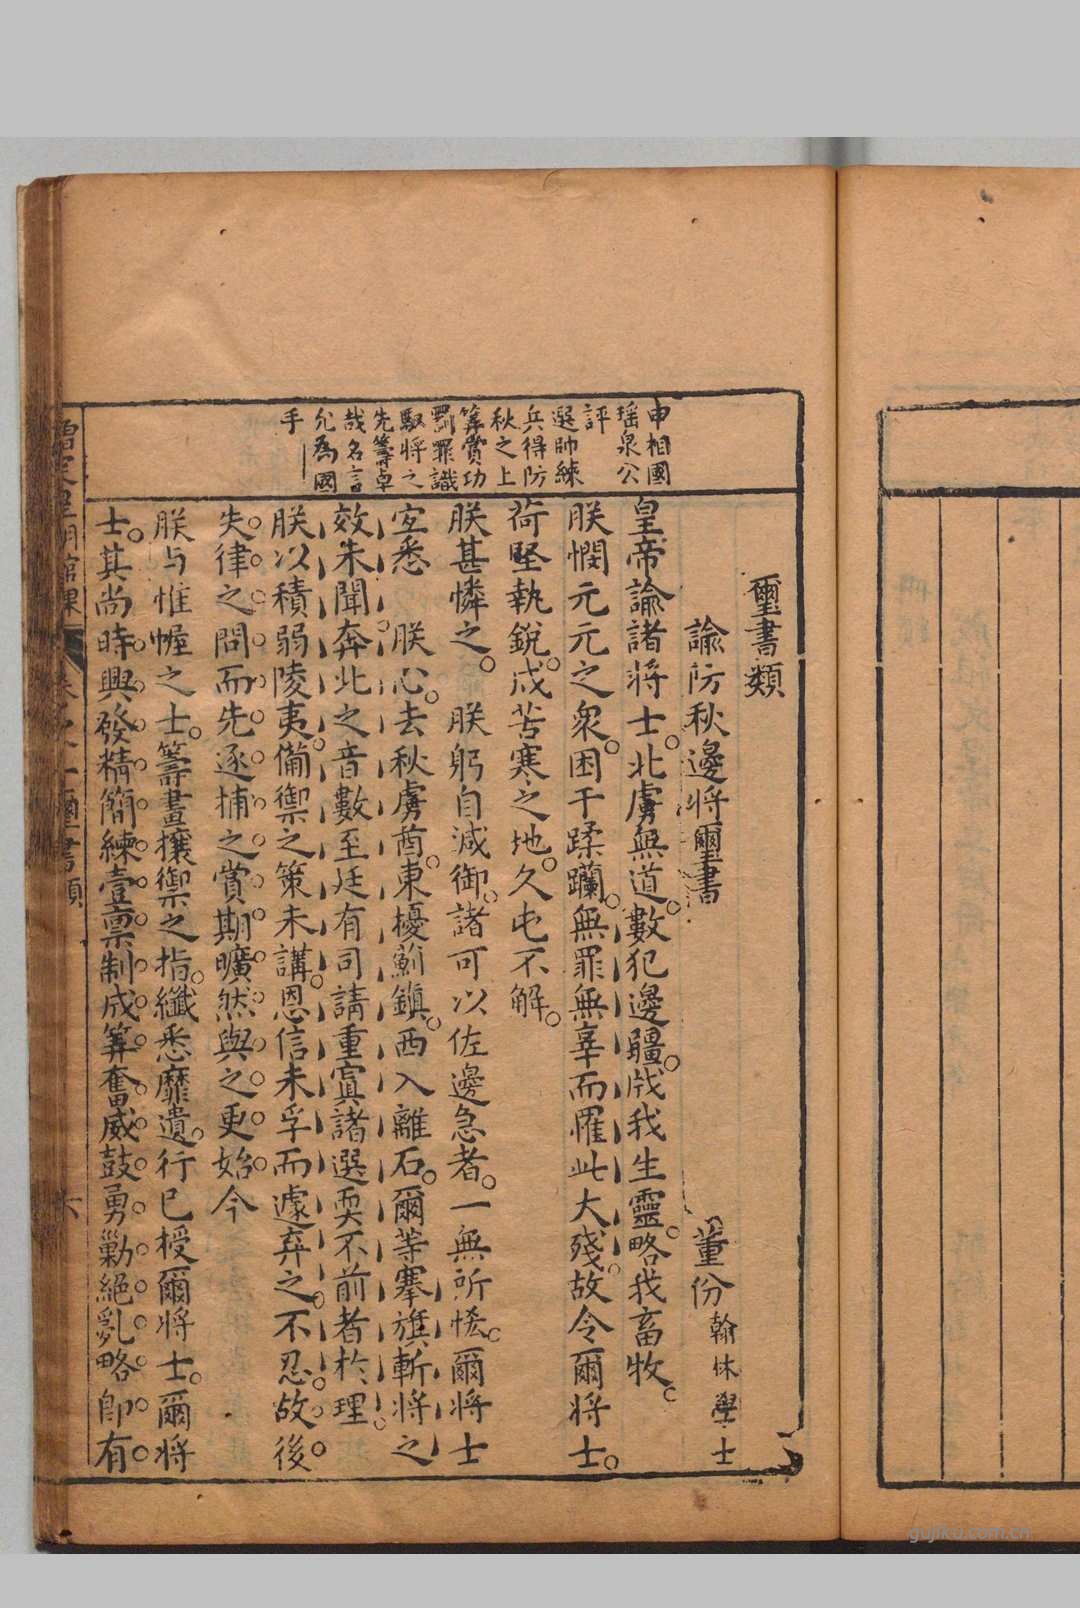 璽書類
諭防秋邊將璽書 董份翰林學士
皇帝諭諸將士北虜無道數犯邊疆戕我生靈略我畜牧
朕憫元元之衆困于蹂躪無罪無辜而罹此大殘故令爾將士
荷堅執銳戍苦寒之地久屯不解
朕甚憐之 朕躬自減御諸可以佐邊急者一無所恡爾將士
宜悉 朕心去秋虜酋東擾薊鎮西入離石爾等搴旗斬將之
效未聞奔北之音數至廷有司請重寘諸選耎不前者於理
朕以積弱陵夷備禦之策未講恩信未孚而遽弃之不忍故後
失律之問而先逐捕之賞期曠然與之更始今
朕与惟幄之士籌畫攘禦之指纖悉靡遺行已授爾將士爾將
士其尚時興發精簡練壹稟制成筭奮威鼓勇勦絕亂略即有
申相國
瑤泉公
評
選帥練
兵得防
秋之上
筭賞功
罰罪識
馭將之
先籌卓
哉名言
允為國
手
卷之一 璽書類
六
gujiku.com.cn